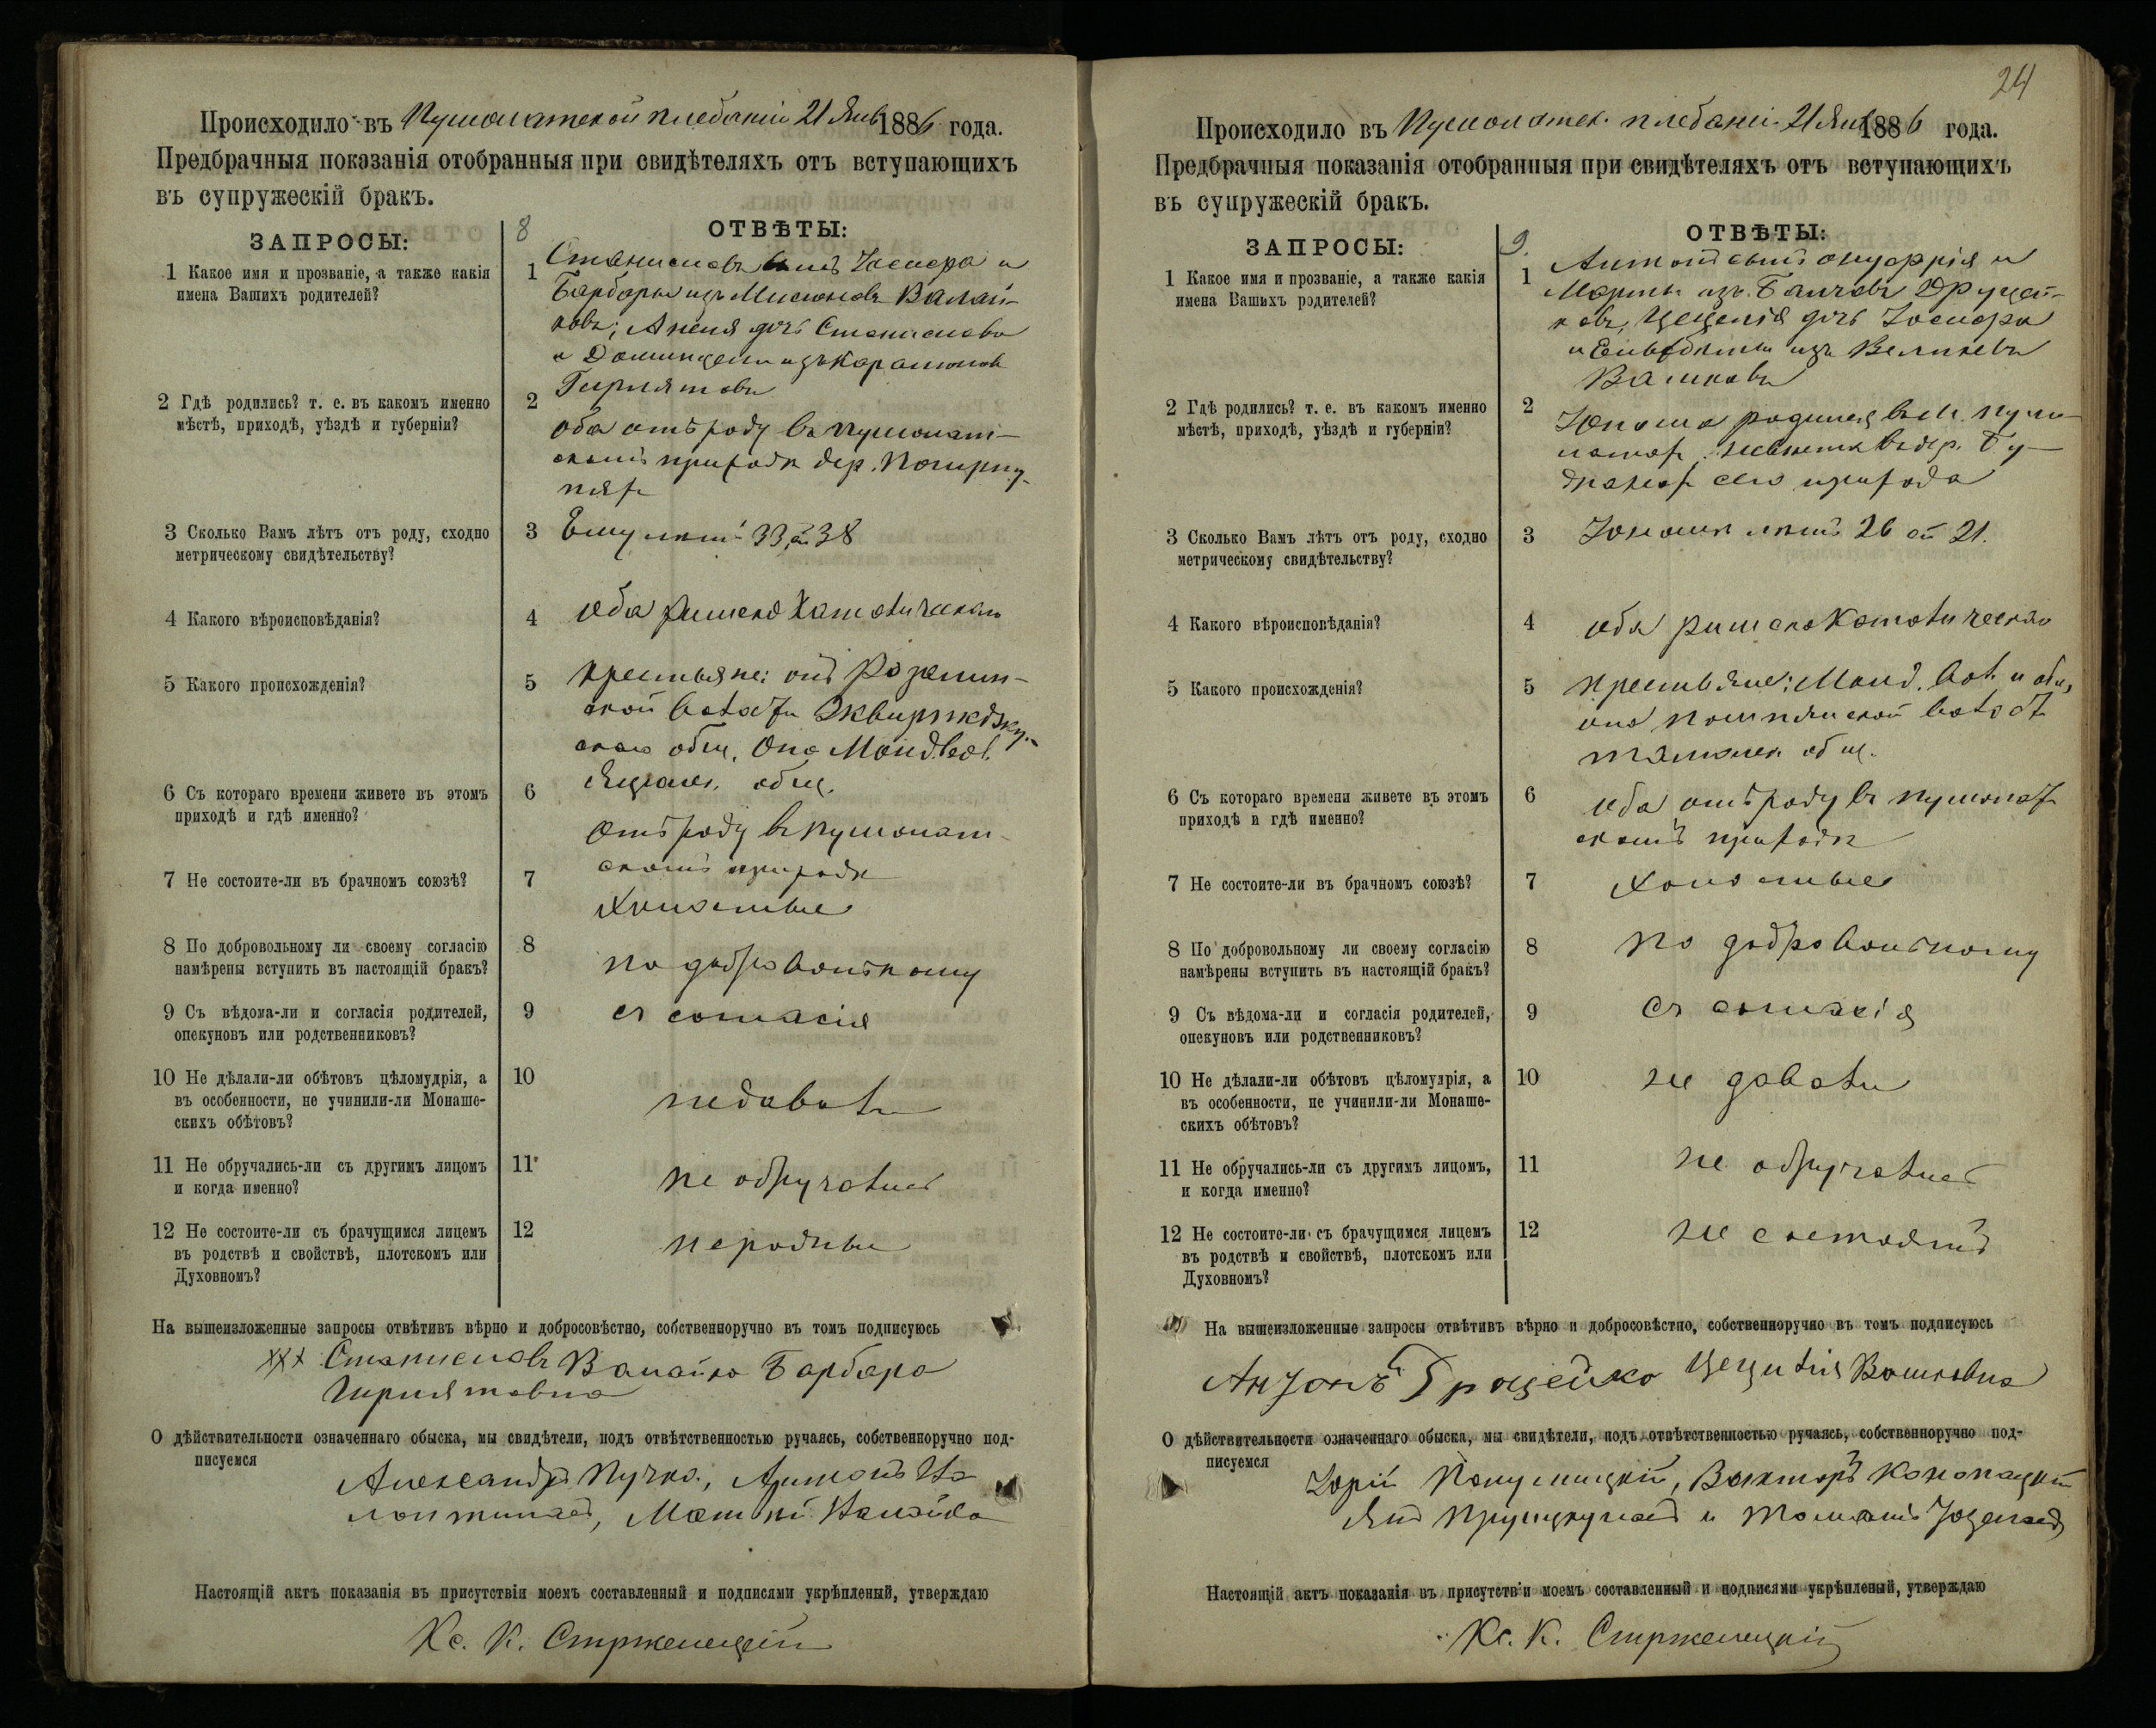 Происходило въ Пушолатской плебаніи 21 Янв 1886 года.
Предбрачныя показанія отобранныя при свидѣтеляхъ отъ вступающихъ
въ супружескій бракъ.
ЗАПРОСЫ:
8
ОТВѢТЫ:
1 Какое имя и прозваніе, а также какія
имена Вашихъ родителей?
1 Станиславъ сынъ Іосифа и
Барбары изъ
дочь Станислава
и
2 Гдѣ родились? т. е. въ какомъ именно
мѣстѣ, приходѣ, уѣздѣ и губерніи?
2 оба отъ роду въ Пушолат-
скомъ приходѣ дер.
3 Сколько Вамъ лѣтъ отъ роду, сходно
метрическому свидѣтельству?
3 Ему лѣтъ 33, ей 38
4 Какого вѣроисповѣданія?
4 оба римско Католическаго
5 Какого происхожденія?
5 крестьяне: онъ
ской волости
скаго общ. Она
общ.
6 Съ котораго времени живете въ этомъ
приходѣ и гдѣ именно?
6 отъ роду въ Пушолат-
скомъ приходѣ
7 Не состоите-ли въ брачномъ союзѣ?
7 Холостые
8 По добровольному ли своему согласію
намѣрены вступить въ настоящій бракъ?
8 по добровольному
9 Съ вѣдома-ли и согласія родителей,
опекуновъ или родственниковъ?
9 съ согласія
10 Не дѣлали-ли обѣтовъ цѣломудрія, а
въ особенности, не учинили-ли Монаше-
скихъ обѣтовъ?
10 не давали
11 Не обручались-ли съ другимъ лицомъ
и когда именно?
11 не обручались
12 Не состоите-ли съ брачущимся лицемъ
въ родствѣ и свойствѣ, плотскомъ или
Духовномъ?
12 не родные
На вышеизложенные запросы отвѣтивъ вѣрно и добросовѣстно, собственноручно въ томъ подписуюсь
ххх Станиславъ Валайко Барбара
О дѣйствительности означеннаго обыска, мы свидѣтели, подъ отвѣтственностью ручаясь, собственноручно под-
писуемся
Александръ Пучко, Антонъ
Настоящій актъ показанія въ присутствіи моемъ составленный и подписями укрѣпленый, утверждаю
Кс. К. Стржелецкій
24
Происходило въ Пушолатск. плебаніи 21 Янв 1886 года.
Предбрачныя показанія отобранныя при свидѣтеляхъ отъ вступающихъ
въ супружескій бракъ.
ЗАПРОСЫ:
9.
ОТВѢТЫ:
1 Какое имя и прозваніе, а также какія
имена Вашихъ родителей?
1 Антонъ сынъ Онуфрія и
изъ
Цецилія дочь Іосифа
и Елисабеты изъ
2 Гдѣ родились? т. е. въ какомъ именно
мѣстѣ, приходѣ, уѣздѣ и губерніи?
2 Юноша родился въ м. Пушо-
латах, невѣста въ дер.
сего прихода
3 Сколько Вамъ лѣтъ отъ роду, сходно
метрическому свидѣтельству?
3 Юношѣ лѣтъ 26 ей 21.
4 Какого вѣроисповѣданія?
4 оба римско Католическаго
5 Какого происхожденія?
5 крестьяне:
она волости
общ.
6 Съ котораго времени живете въ этомъ
приходѣ и гдѣ именно?
6 оба отъ роду въ Пушолат
скомъ приходѣ
7 Не состоите-ли въ брачномъ союзѣ?
7 Холостые
8 По добровольному ли своему согласію
намѣрены вступить въ настоящій бракъ?
8 по добровольному
9 Съ вѣдома-ли и согласія родителей,
опекуновъ или родственниковъ?
9 съ согласія
10 Не дѣлали-ли обѣтовъ цѣломудрія, а
въ особенности, не учинили-ли Монаше-
скихъ обѣтовъ?
10 не давали
11 Не обручались-ли съ другимъ лицомъ,
и когда именно?
11 не обручались
12 Не состоите-ли съ брачущимся лицемъ
въ родствѣ и свойствѣ, плотскомъ или
Духовномъ?
12 не состоятъ
На вышеизложенные запросы отвѣтивъ вѣрно и добросовѣстно, собственноручно въ томъ подписуюсь
Антонъ Цецилія
О дѣйствительности означеннаго обыска, мы свидѣтели, подъ отвѣтственностью ручаясь, собственноручно под-
писуемся
Викторъ Конопацкій
Янъ и
Настоящій актъ показанія въ присутствіи моемъ составленный и подписями укрѣпленый, утверждаю
Кс. К. Стржелецкій